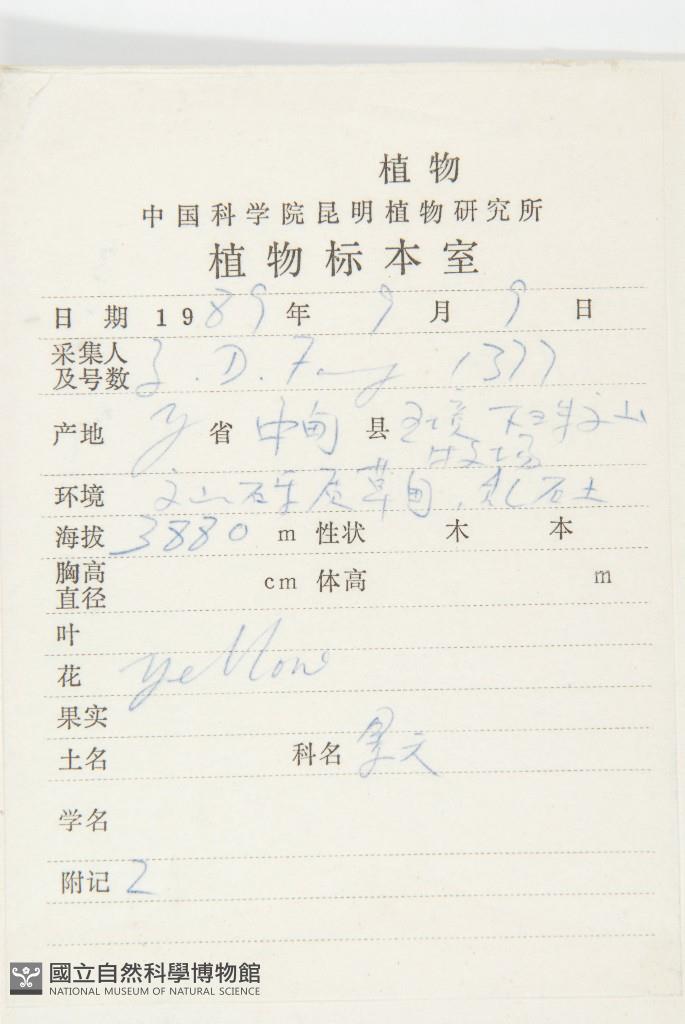 植物
中国科学院昆明植物研究所
植物标本室
日期 1989年 9月 9日
采集人
及号数 Z. D. Fang 1377
产地 Y 省 中甸 县
牧场
环境 草甸
海拔 3880 m 性状 木 本
胸高
直径 cm 体高 m
叶
花 yellow
果实
土名 科名 景天
学名
附记 2
國立自然科學博物館
NATIONAL MUSEUM OF NATURAL SCIENCE